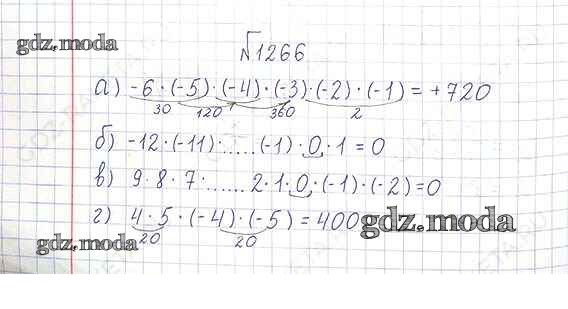 gdz.moda
№1266
а) -6·(-5)·(-4)·(-3)·(-2)·(-1) = +720
30 120 360 2
б) -12·(-11)·.....(-1)·0·1 = 0
в) 9·8·7·......2·1·0·(-1)·(-2)=0
г) 4·5·(-4)·(-5) = 400
gdz.moda
20 20
gdz.moda